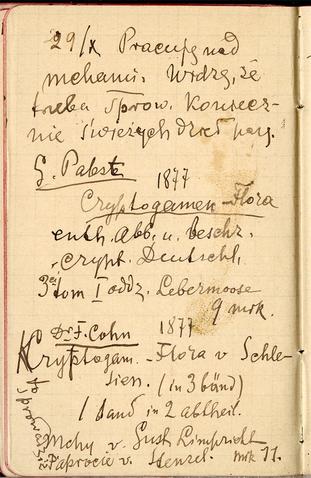 29/X Pracuję nad
mchami. Widzę, że
trzeba sprow. koniecz-
nie świeższych dzieł parę.
G. Pabst
1877
Cryptogamen-Flora
enth. Abb. u. beschr.
crypt. Deutschl.
3ci tom I oddz. Lebermoose
9 mrk.
Dr F. Cohn 1877
Kryptogam.-Flora v Schle-
sien. (in 3 bänd)
1 Band in 2 abtheil.
Mchy v. Gust Limpricht
Paprocie v. Stenzel. mrk 11.